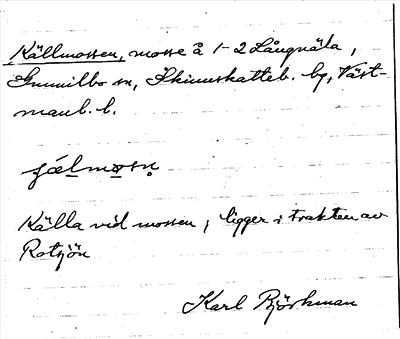 Källmossen, mosse å 1-2 Långnäta,
Gunnilbo sn, Skinnskatteb. bg, Väst-
manl. l.
Källa vid mossen, ligger i trakten av
Rotsjön
Karl Björkman